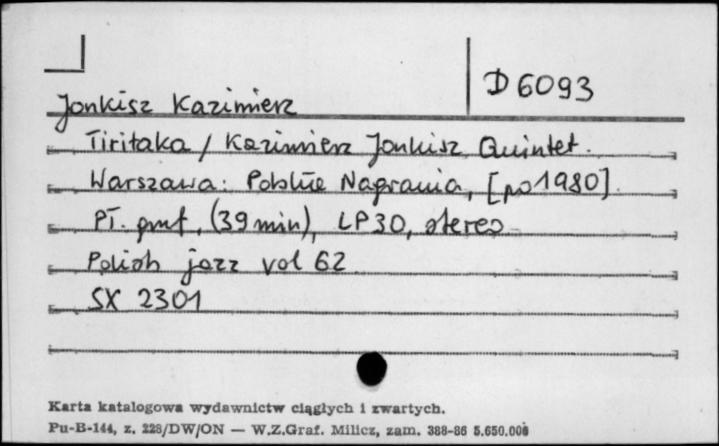 D 6093
Jonkisz Kazimierz
Tiritaka / Kazimierz Jonkisz Quintet.
Warszawa: Polskie Nagrania, [po 1980].
Pł. gmf, (39 min), LP 30, stereo
Polish jazz vol 62
SX 2301
Karta katalogowa wydawnictw ciągłych i zwartych.
Pu-B-144, z. 228/DW/ON — W.Z.Graf. Milicz, zam. 388-86 5.650.000